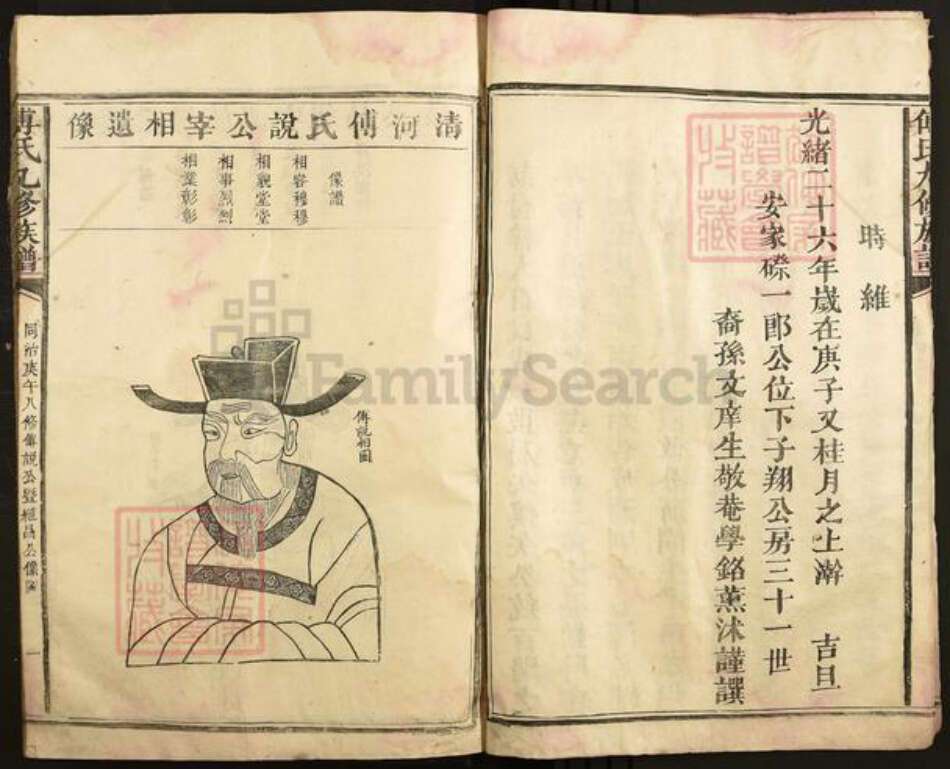 時維
光緒二十六年歲在庚子又桂月之上澣 吉旦
安家磜一郎公位下子翔公房三十一世
裔孫文庠生敬菴學銘薰沐謹譔
清河傅氏說公宰相遺像
像譜
相容穆穆
相貌堂堂
相事烈烈
相業彰彰
傅說相圖
傅氏九修族譜
同治庚午八修傅說公暨 昌公像
一
FamilySearch